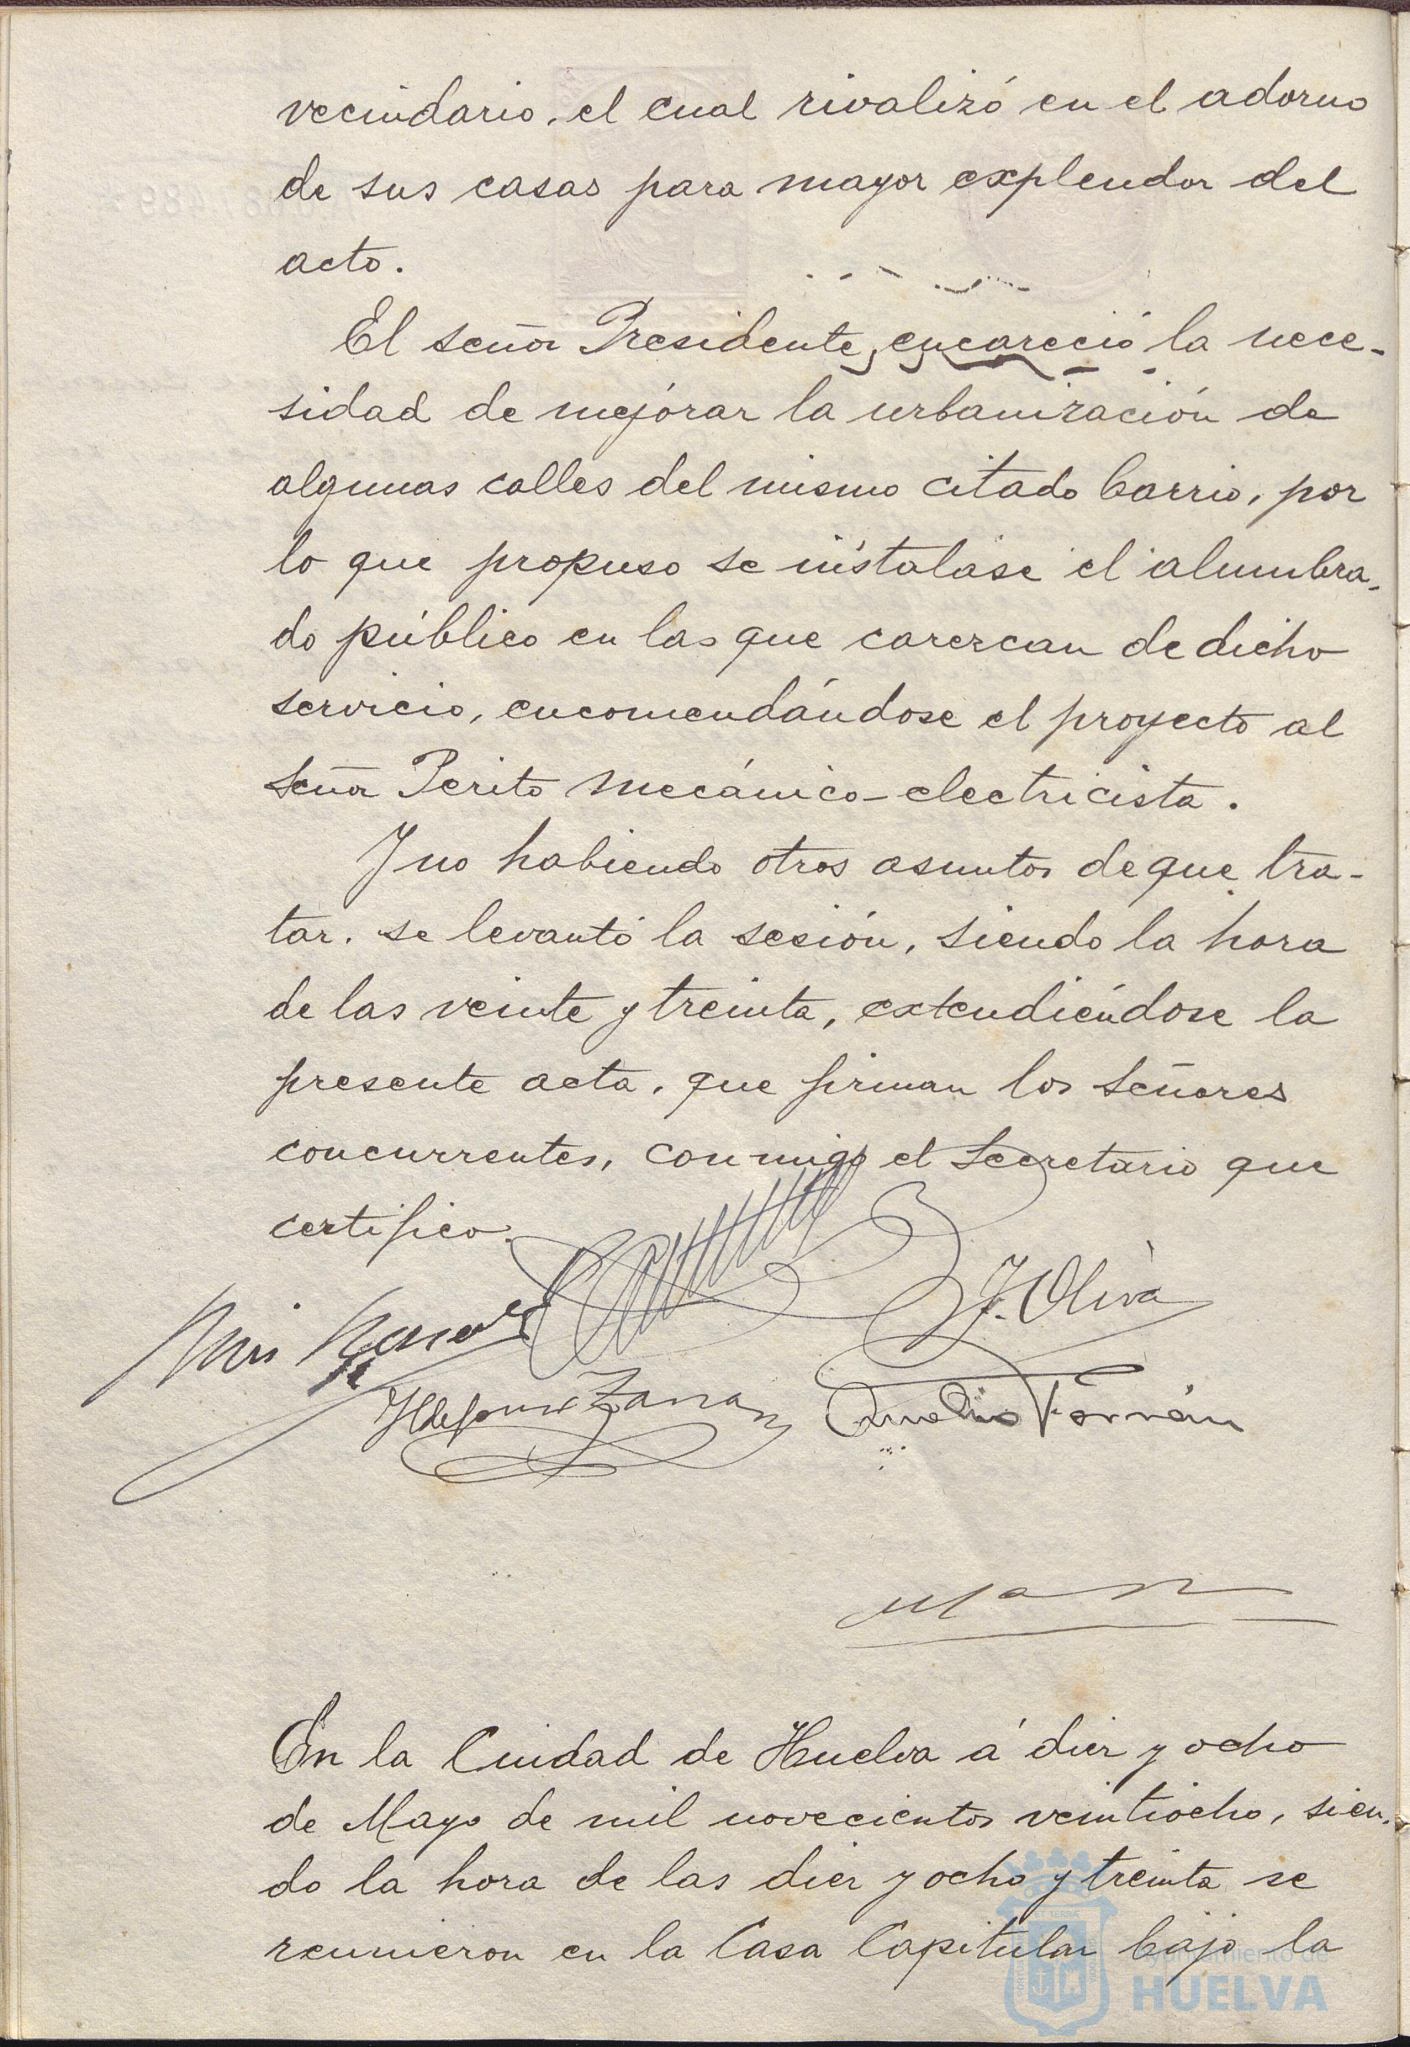 vecindario, el cual rivalizó en el adorno
de sus casas para mayor explendor del
acto.
El señor Presidente, encareció la nece-
sidad de mejorar la urbanización de
algunas calles del mismo citado barrio, por
lo que propuso se instalase el alumbra-
do público en las que carezcan de dicho
servicio, encomendándose el proyecto al
señor Perito mecánico-electricista.
Y no habiendo otros asuntos de que tra-
tar, se levantó la sesión, siendo la hora
de las veinte y treinta, extendiéndose la
presente acta, que firman los señores
concurrentes, conmigo el Secretario que
certifico.
J. Oliva
Aurelio Terrán
En la Ciudad de Huelva á diez y ocho
de Mayo de mil novecientos veintiocho, sien-
do la hora de las diez y ocho y treinta se
reunieron en la Casa Capitular bajo la
Ayuntamiento de
HUELVA